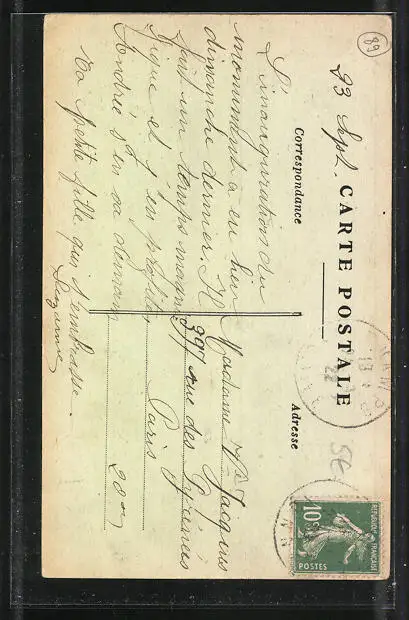 89
23 Sept.
CARTE POSTALE
Correspondance
Adresse
L'inauguration du
monument a eu lieu
dimanche dernier. Il
fait un temps
et j'en profite
Andrée s'en va demain
Ta petite fille qui t'embrasse.
Suzanne
Madame Vve Jacquus
399 rue des Pyrénées
Paris
20e
RÉPUBLIQUE FRANÇAISE
10c
POSTES